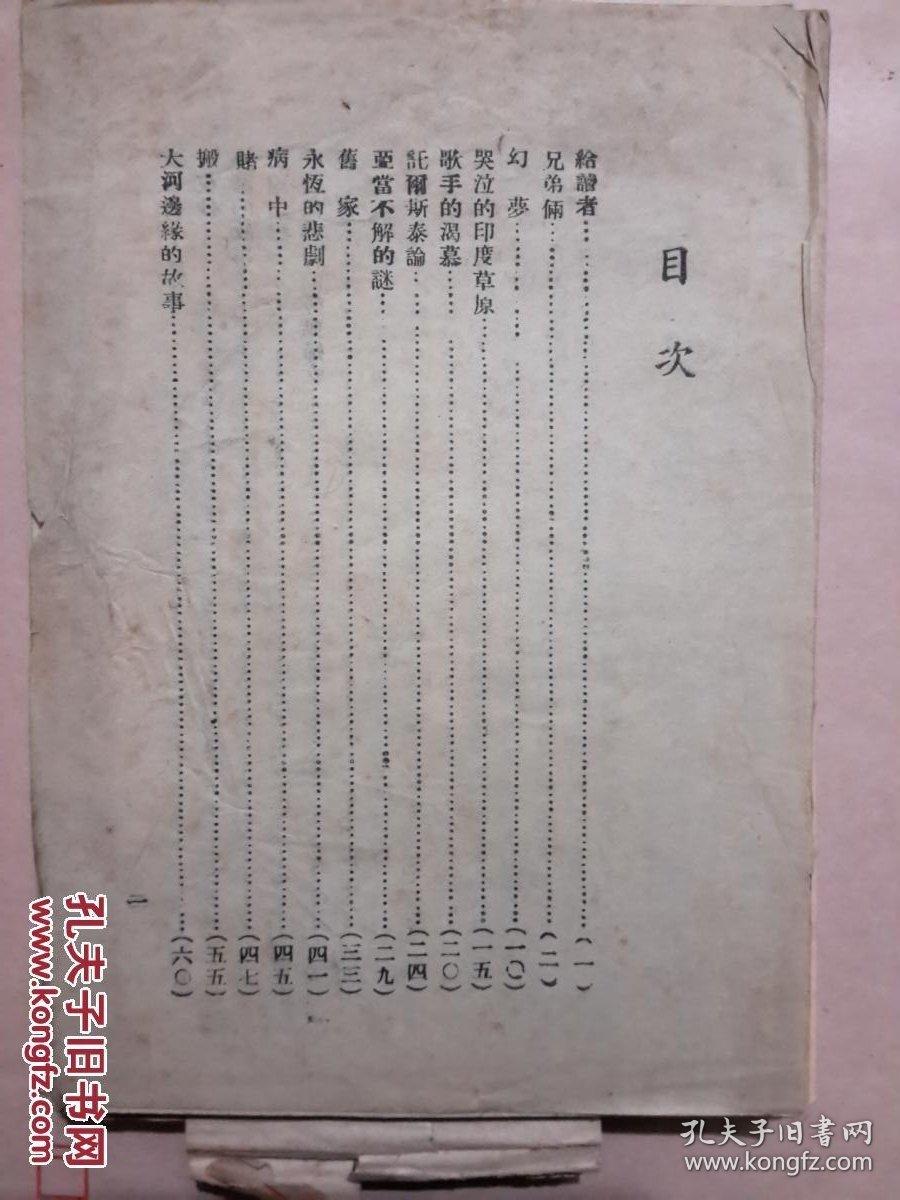 目次
給讀者……(一)
兄弟倆……(二)
幻夢……(一〇)
哭泣的印度草原……(一五)
歌手的渴慕……(二〇)
託爾斯泰論……(二四)
亞當不解的謎……(二九)
舊家……(三三)
永恆的悲劇……(四一)
病中……(四五)
賭……(四七)
搬……(五五)
大河邊緣的故事……(六〇)
孔夫子旧书网
www.kongfz.com
孔夫子旧书网
www.kongfz.com